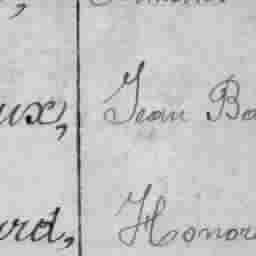 ux, Jean Ba
urd, Honor